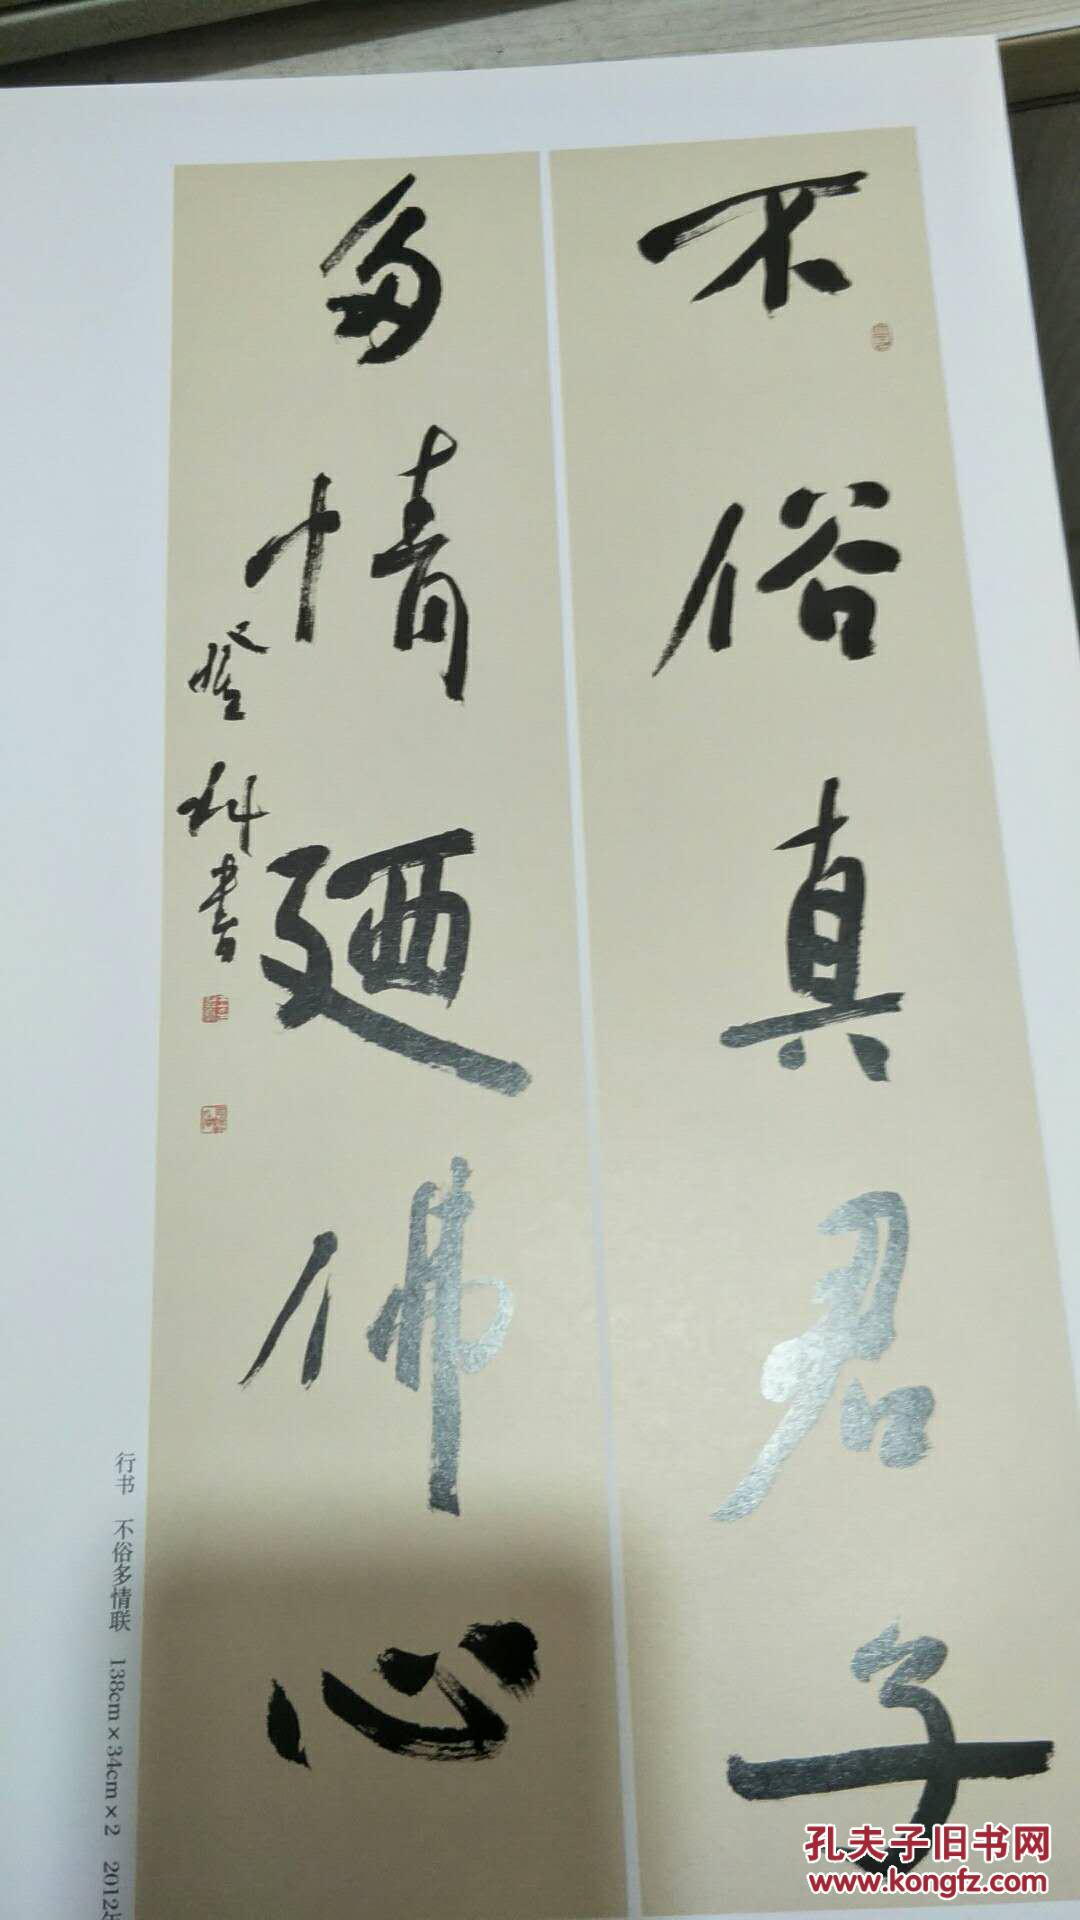 不俗真君子
多情廼佛心
登科書
行书 不俗多情联 138cm×34cm×2 2012年
孔夫子旧书网
www.kongfz.com